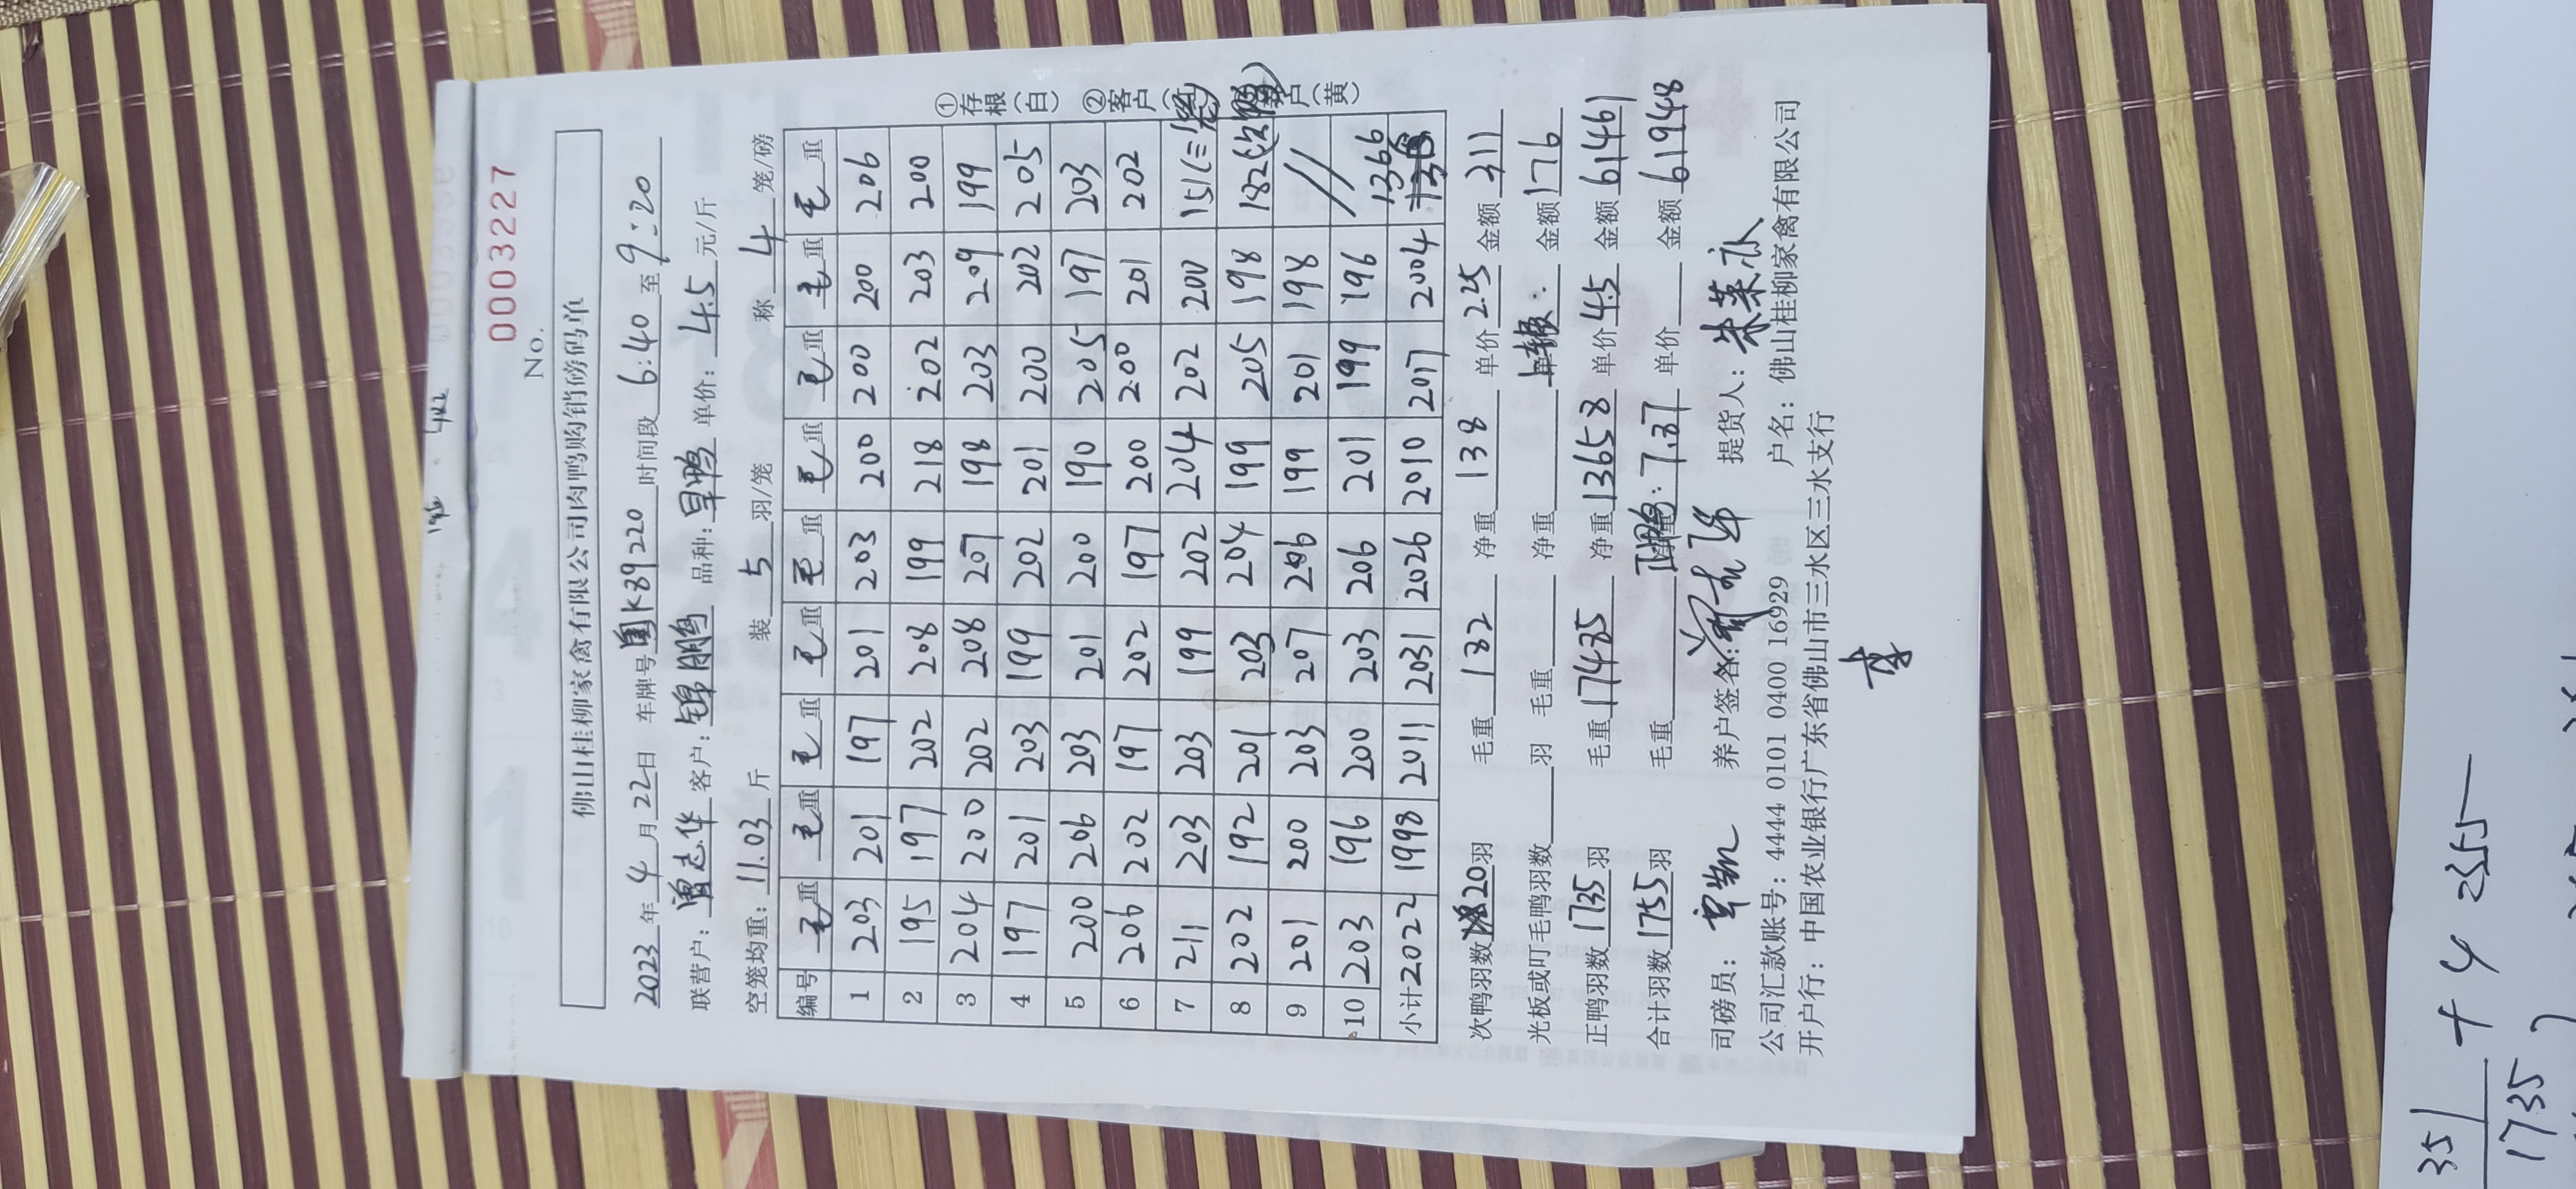 No. 0003227
佛山桂柳家禽有限公司肉鸭购销磅码单
2023年4月22日 车牌号 K89220 时间段 6:40 至 9:20
联营户: 曾志华 客户: 锦鹏 品种: 旱鸭 单价: 4.5 元/斤
空笼均重: 11.03 斤 装 5 羽/笼 称 4 笼/磅
编号 毛重 毛重 毛重 毛重 毛重 毛重 毛重 毛重 毛重
1 203 201 197 201 203 200 200 200 206
2 195 197 202 208 199 218 202 203 200
3 204 200 202 208 207 198 203 209 199
4 197 201 203 199 202 201 200 202 205
5 200 206 203 201 200 190 205 197 203
6 206 202 197 202 197 200 200 201 202
7 211 203 203 199 202 204 202 200 151(三笼)
8 202 192 201 203 204 199 205 198 182(次鸭)
9 201 200 203 207 206 199 201 198 //
10 203 196 200 203 206 201 199 196
小计 2022 1998 2011 2031 2026 2010 2017 2004 1366
①存根(白) ②客户 户(黄)
次鸭羽数 20 羽 毛重 182 净重 138 单价 2.25 金额 311
光板或叮毛鸭羽数 羽 毛重 净重 金额 176
正鸭羽数 1735 羽 毛重 17485 净重 13658 单价 4.5 金额 61461
合计羽数 1755 羽 毛重 正鸭: 7.87 单价 金额 61948
司磅员: 养户签名: 提货人:
公司汇款账号: 4444 0101 0400 16929 户名: 佛山桂柳家禽有限公司
开户行: 中国农业银行广东省佛山市三水区三水支行
35
+ 4 355
1735